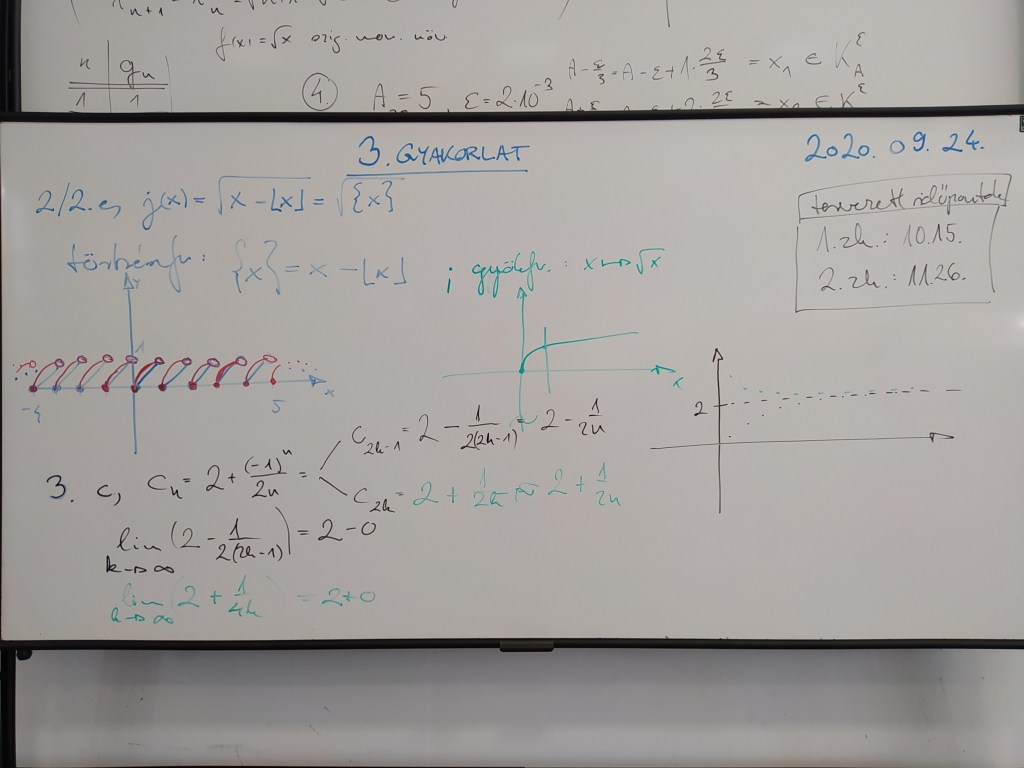 f(x) = √x szig. mon. növ.
n | gₙ
1 | 1
④ A = 5, ε = 2·10⁻³
A - ε/3 = A - ε + 1·2ε/3 = x₁ ∈ K_A^ε
3. GYAKORLAT
2020. 09. 24.
2/2. e, j(x) = √(x - ⌊x⌋) = √{x}
tervezett időpontok
1. zh.: 10.15.
2. zh.: 11.26.
törtrészfv.: {x} = x - ⌊x⌋ ; gyökfv.: x ↦ √x
y
x
-4
5
x
2
3. c, cₙ = 2 + (-1)ⁿ/2n =
c₂ₖ₋₁ = 2 - 1/2(2k-1) = 2 - 1/2n
c₂ₖ = 2 + 1/2n = 2 + 1/2n
lim k→∞ (2 - 1/2(2k-1)) = 2 - 0
lim k→∞ (2 + 1/4k) = 2 + 0